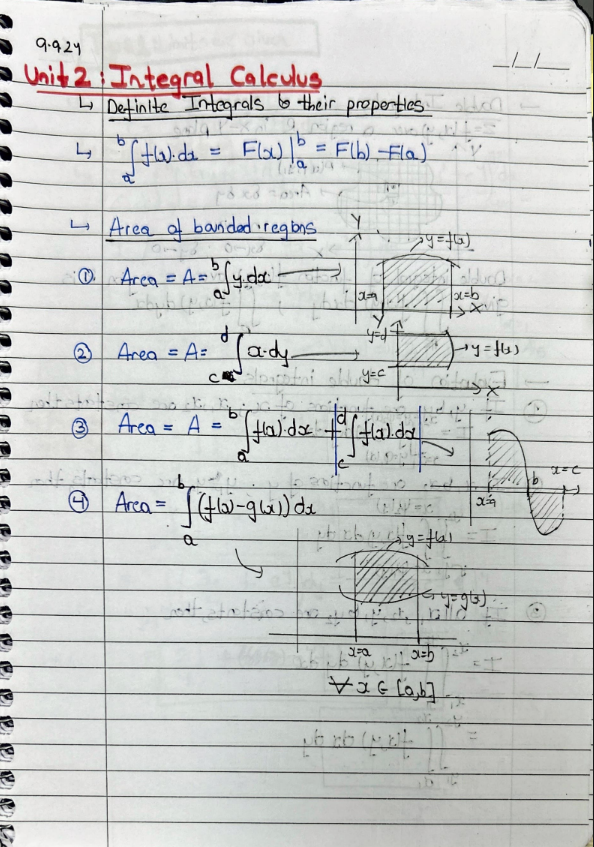 9.9.24
_/_/_
Unit 2: Integral Calculus
↳ Definite Integrals & their properties
↳ ∫ₐᵇ f(x).dx = F(x)|ₐᵇ = F(b) - F(a)
↳ Area of bounded regions
① Area = A = ₐ∫ᵇ y.dx
Y
y=f(x)
x=a
x=b
X
② Area = A = c∫d x.dy
Y
y=d
y=c
y=f(x)
X
③ Area = A = ₐ∫ᵇ f(x).dx + |c∫d f(x).dx|
x=a
b
x=c
④ Area = ₐ∫ᵇ (f(x)-g(x)) dx
y=f(x)
y=g(x)
x=a
x=b
∀ x ∈ [a,b]